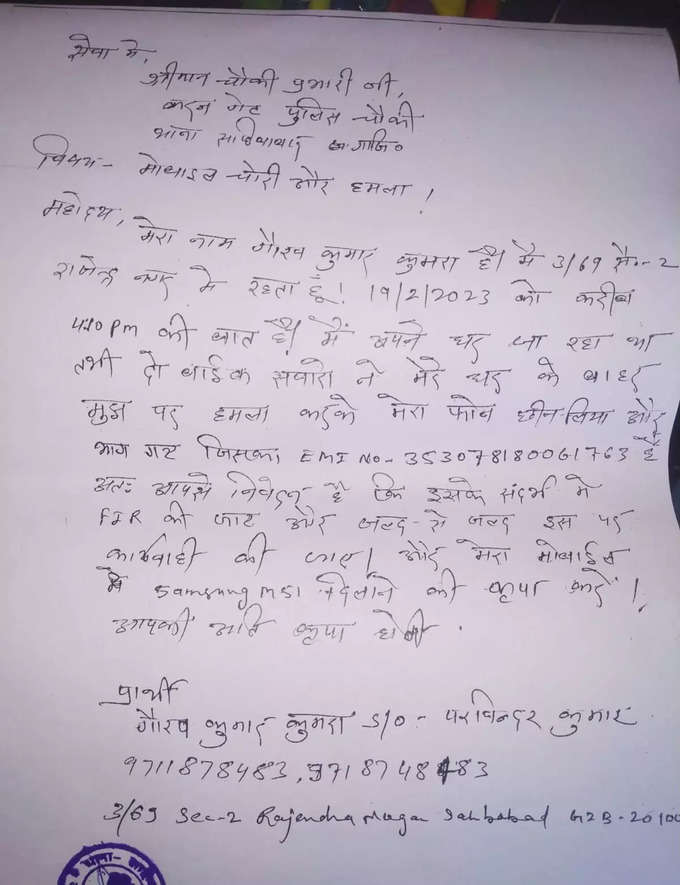 सेवा मे,
श्रीमान चौकी प्रभारी जी,
करन गेट पुलिस चौकी
थाना साहिबाबाद गाजि०
विषय- मोबाइल चोरी और हमला !
महोदय,
मेरा नाम गौरव कुमार कुमरा है। मै 3/69 सै०-2
राजेन्द्र नगर मे रहता हूँ! 19/2/2023 को करीब
4:10 Pm की बात है। मैं अपने घर जा रहा था
तभी दो बाईक सवारो ने मेरे घर के बाहर
मुझ पर हमला करके मेरा फोन छीन लिया और
भाग गए जिसका EMI No- 353078180061763 है
अतः आपसे निवेदन है कि इसके संदर्भ मे
FIR की जाए और जल्द-से जल्द इस पर
कार्यवाही की जाए। और मेरा मोबाईल
Samsung M51 दिलाने की कृपा करें !
आपकी अति कृपा होगी .
प्रार्थी
गौरव कुमार कुमरा S/O - परविन्दर कुमार
9711878483, 9718748483
3/69 Sec-2 Rajendra Nagar Sahbabad GZB-20100